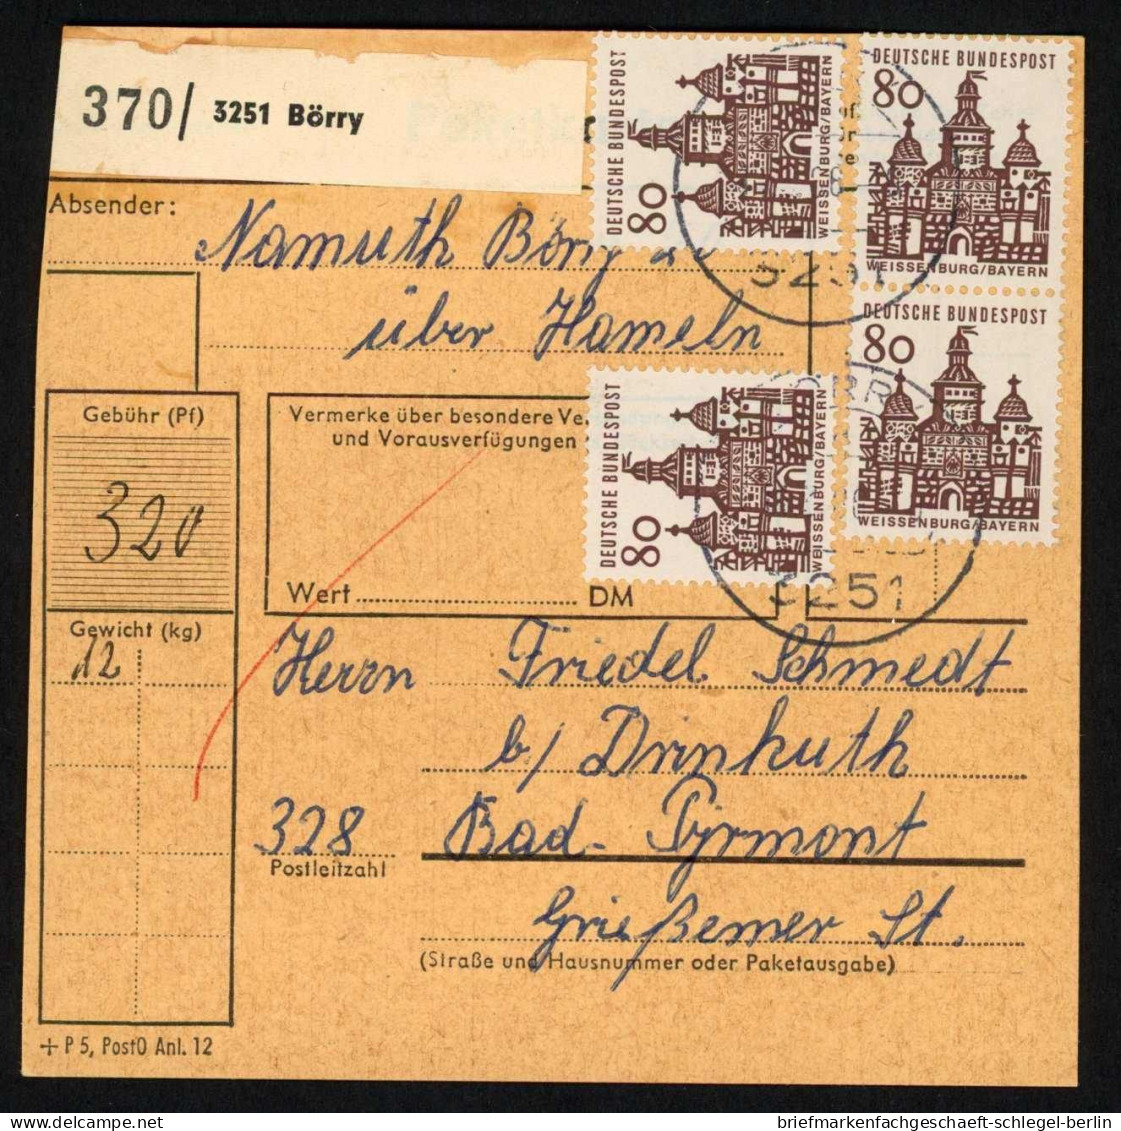 370/ 3251 Börry
Absender:
Namuth Börry
über Hameln
DEUTSCHE BUNDESPOST
80
WEISSENBURG/BAYERN
DEUTSCHE BUNDESPOST
80
WEISSENBURG/BAYERN
3251
DEUTSCHE BUNDESPOST
80
WEISSENBURG/BAYERN
DEUTSCHE BUNDESPOST
80
WEISSENBURG/BAYERN
3251
Gebühr (Pf)
320
Gewicht (kg)
12
Vermerke über besondere
und Vorausverfügungen
Wert DM
Herrn Friedel Schmedt
b/ Drinkuth
328 Bad-Pyrmont
Postleitzahl
Grießemer St.
(Straße und Hausnummer oder Paketausgabe)
+ P 5, PostO Anl. 12
briefmarkenfachgeschaeft-schlegel-berlin